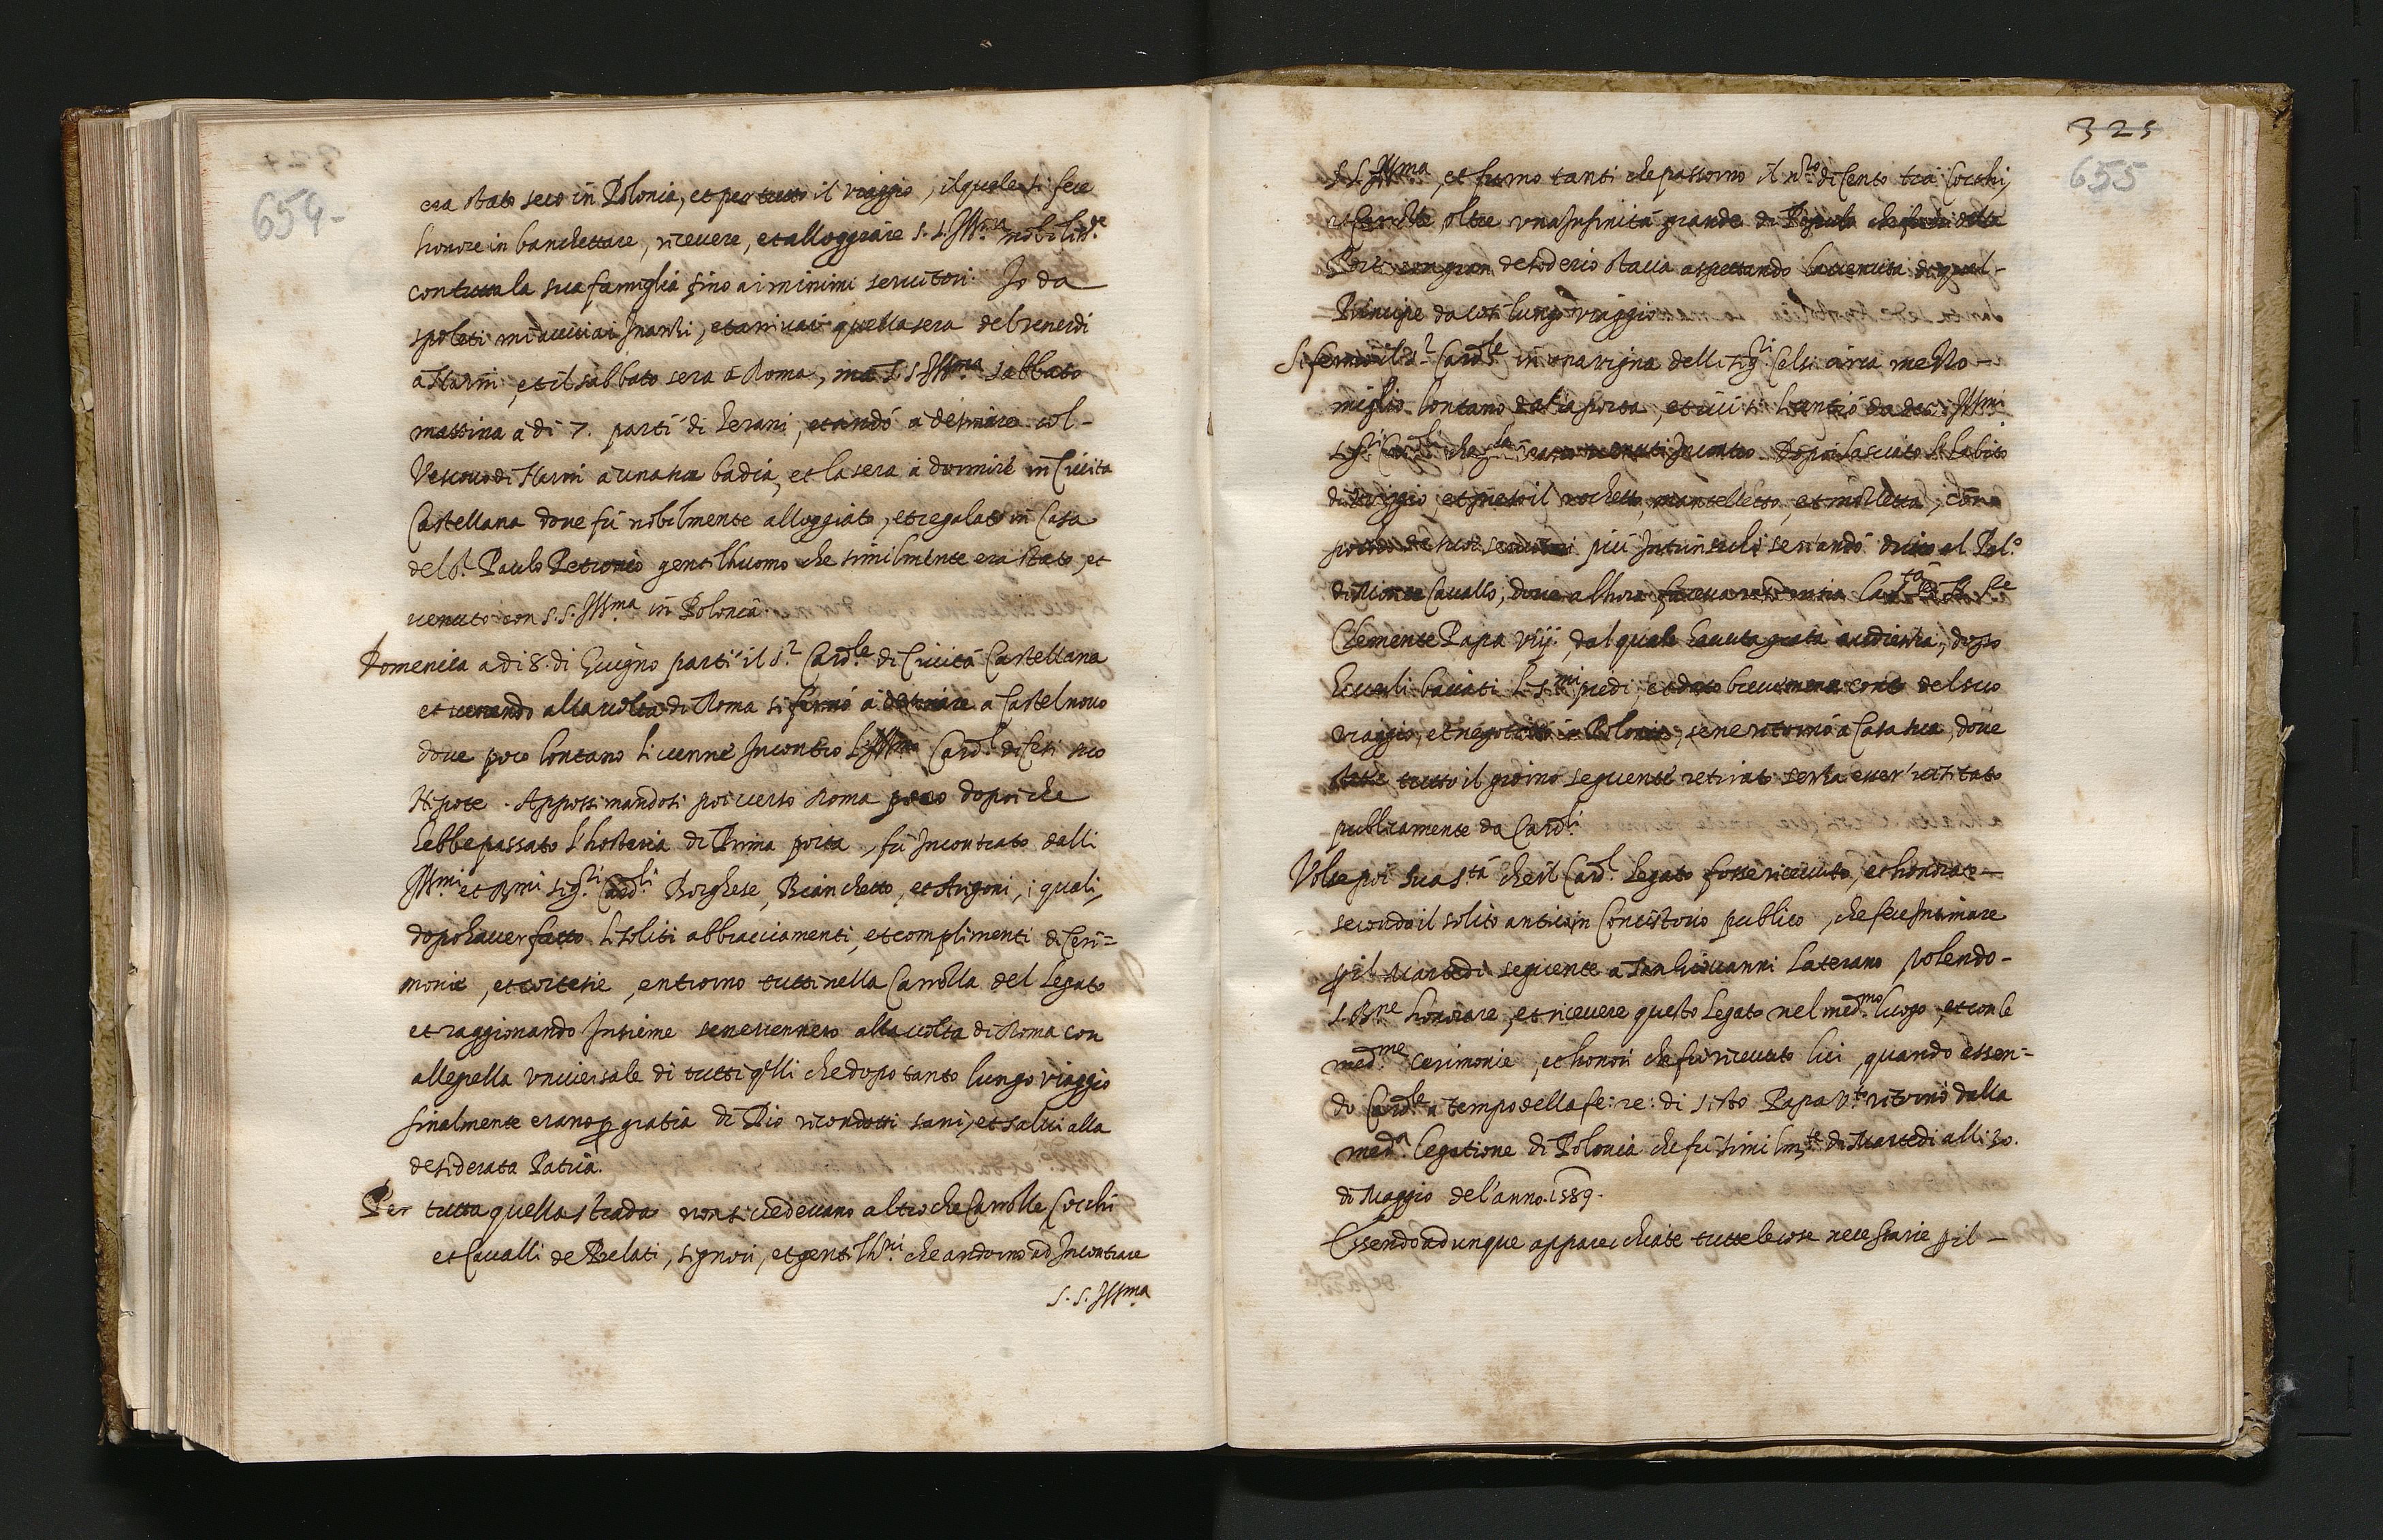 654-
era stato seco in Polonia, et per tutto il viaggio, il quale si fece
honore in banchettare, ricevere, et alloggiare S. S. Ill.ma nobilm.te
con tutta la sua famiglia fino a i minimi servitori. Io da
spoleti mi avviai Inanzi, et arrivai quella sera del venerdi
à Narni, et il sabbato sera à Roma, ma S. S. Ill.ma sabbato
mattina à di 7. partì di Terani, et andó à desinare col-
Vescovo di Narni a una sua badia, et la sera à dormire in Civita
Castellana dove fù nobilmente alloggiato, et regalato in Casa
del S.r Paulo Petronio gentilhuomo che similmente era stato, et
venuto con S. S. Ill.ma in Polonia.
Domenica a di 8. di Giugno partì il S.r Card.le di Cività Castellana
et venendo alla volta di Roma si fermó à desinare a Castelnovo
dove poco lontano li venne Incontro l'Ill.mo Card.l di Cesi suo
Nipote. Appossimandosi poi verso Roma poco dopoi che
hebbe passato l'hosteria di Prima porta, fù Incontrato dalli
Ill.mi et R.mi Sig.ri Card.li Borghese, Bianchetto, et Arigoni, i quali,
dopo haver fatto li soliti abbracciamenti, et complimenti di Ceri=
monie, et cortesie, entrorno tutti nella Carrozza del Legato
et raggionando Insieme se ne vennero alla volta di Roma con
allegrezza universale di tutti q̃lli che dopo tanto lungo viaggio
finalmente erano p gratia di Dio ricondotti sani, et salvi alla
desiderata Patria.
Per tutta quella strada non si vedevano altro che Carrozze Cocchi
et Cavalli de Prelati, Signori, et gentilh.ni che andorno ad Incontrare
S. S. Ill.ma
325
655
S. S. Ill.ma, et furno tanti che passorno il n.ro di Cento trà Cocchi,
et Carrozze, oltre una Infinità grande di Popolo che fuori della
Porta con gran desiderio stava aspettando la venuta di quel-
Principe da così lungo viaggio.
Si fermò il S.r Card.le in una vigna delli Sig.ri Celsi circa mezzo-
miglio lontano dalla porta, et ivi si licentiò da dec. Ill.mi
Sig.ri Card.li che gli erano venuti Incontro. Dopoi lasciato l'habito
di viaggio, et preso il rochetto, mantelletto, et mozzetta, con
pochi de suoi servitori più Intrinsechi se n'andò dritto al Pal.o
di Monte Cavallo, dove alhora faceva residentia la S.tà di N. S.re
Clemente Papa viij. dal quale havuta grata audientia, dopo
haverli baciati li S.mi piedi, et dato brevemente conto del suo
viaggio, et negotiato in Polonia, se ne ritornò à Casa sua, dove
stette tutto il giorno seguente retirato senza esser visitato
publicamente da Card.li
Volse poi Sua S.tà che il Card.l Legato fosse ricevuto, et honorato-
secondo il solito antico in Concistorio publico, che fece Intimare
p il Martedì seguente à San Giovanni Laterano volendo-
S. B.ne honorare, et ricevere questo Legato nel med.mo luogo, et con le
med.me cerimonie, et honori che fu ricevuto lui, quando essen=
do Card.le a tempo della fe: re: di Sisto Papa V.to ritornò dalla
med.a legatione di Polonia che fù similm.te di Martedi alli 30.
di Maggio del'anno. 1589.
Essendo adunque apparecchiate tutte le cose necessarie p il-